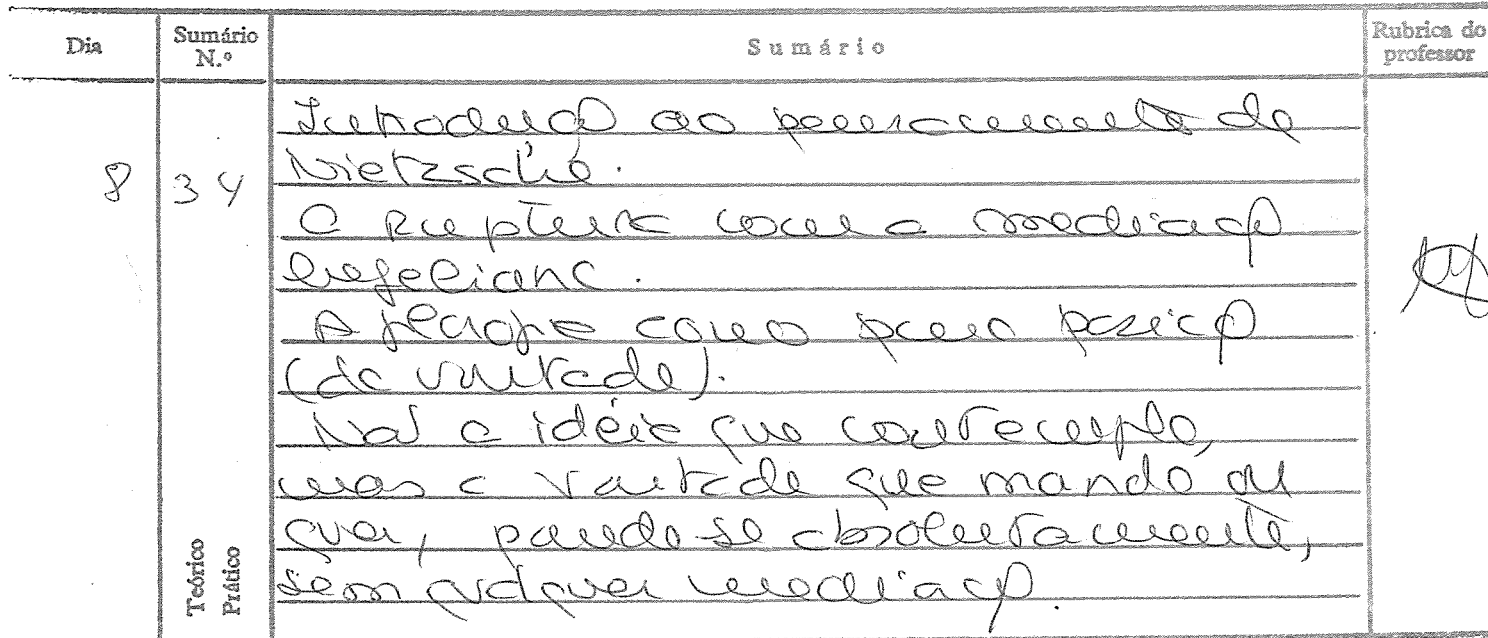 Dia
Sumário N.º
Sumário
Rubrica do professor
8
34
Introdução ao pensamento de
Nietzsche.
A ruptura com a mediação
hegeliana.
A como pura posição
(da vontade).
Não a idéia que contempla,
mas a vontade que manda ou
quer, pondo-se absolutamente,
sem qualquer mediação.
Teórico
Prático